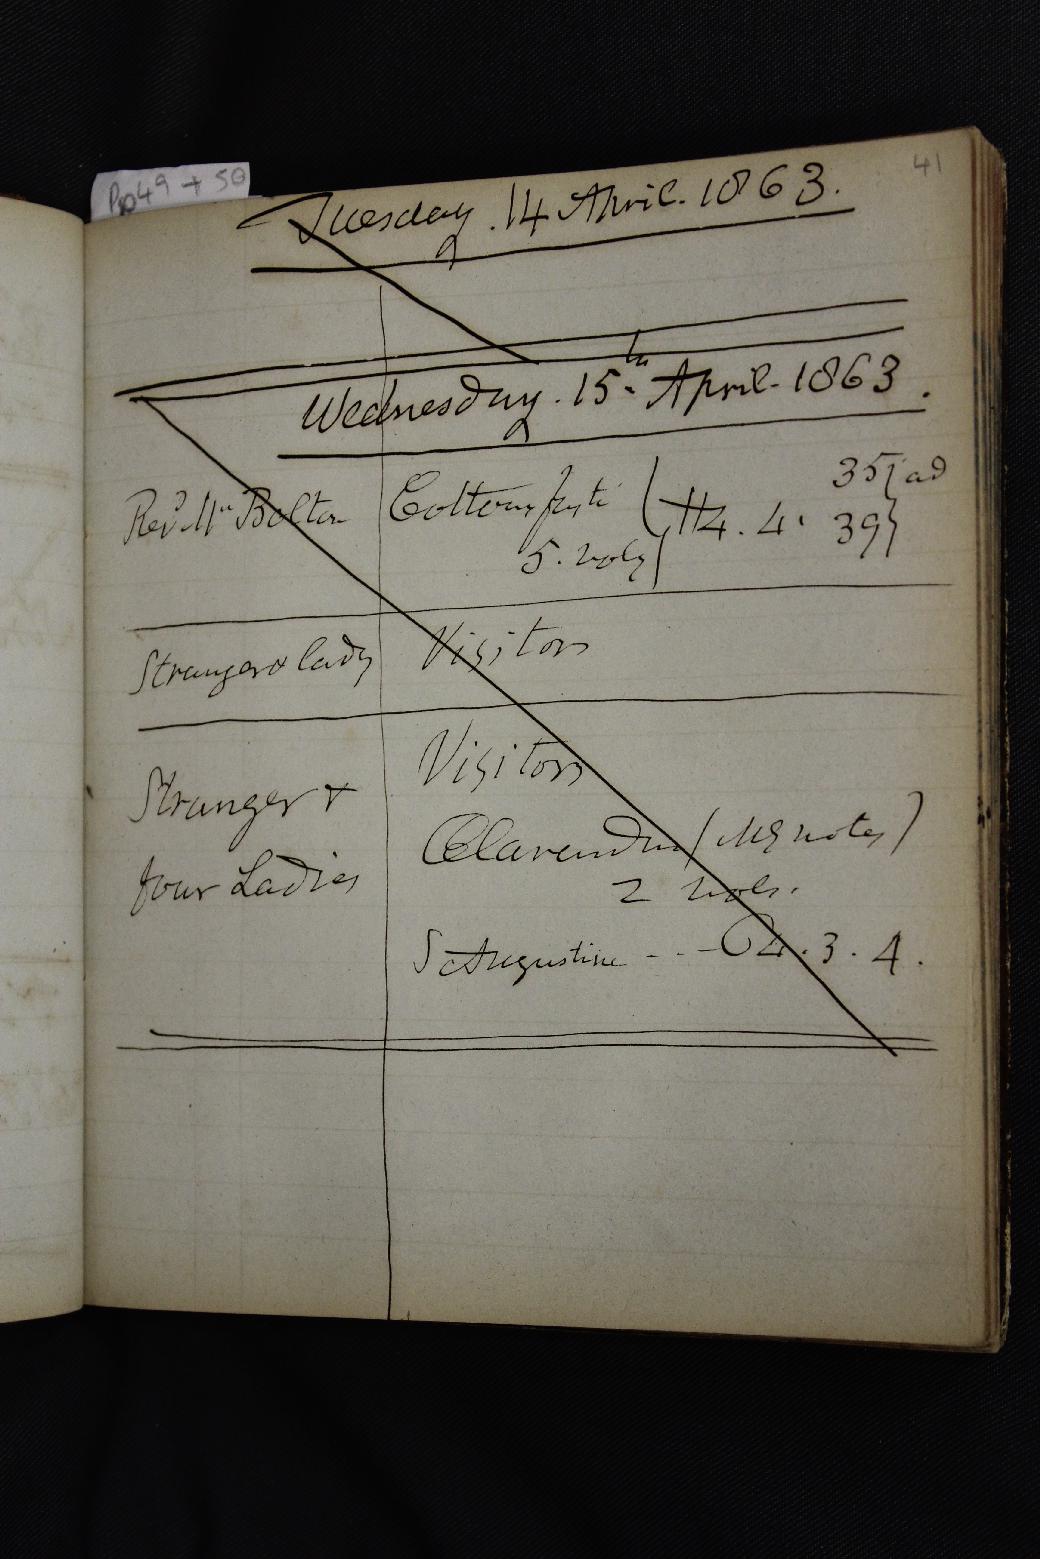 Pp 49 + 50
41
Tuesday. 14 April. 1863.
Wednesday. 15th April. 1863.
Revd Mr Bolton Cottons fasti 5. vols H4. 4. 35 ad 39
Stranger & lady Visitors
Stranger & Visitors
four Ladies Clarendon (MS notes)
2 vols.
St Augustine - - - C4. 3. 4.